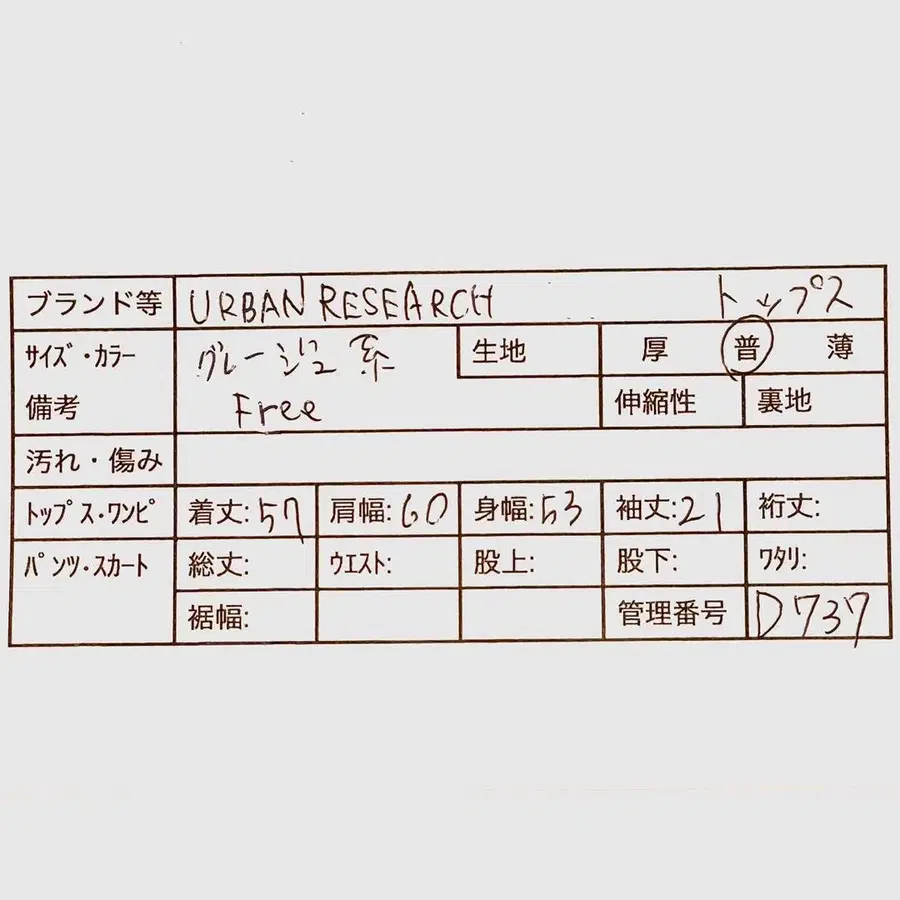 ブランド等 URBAN RESEARCH トップス
サイズ・カラー グレージュ系 生地 厚 普 薄
備考 Free 伸縮性 裏地
汚れ・傷み
トップス・ワンピ 着丈:57 肩幅:60 身幅:53 袖丈:21 裄丈:
パンツ・スカート 総丈: ウエスト: 股上: 股下: ワタリ:
裾幅: 管理番号 D737